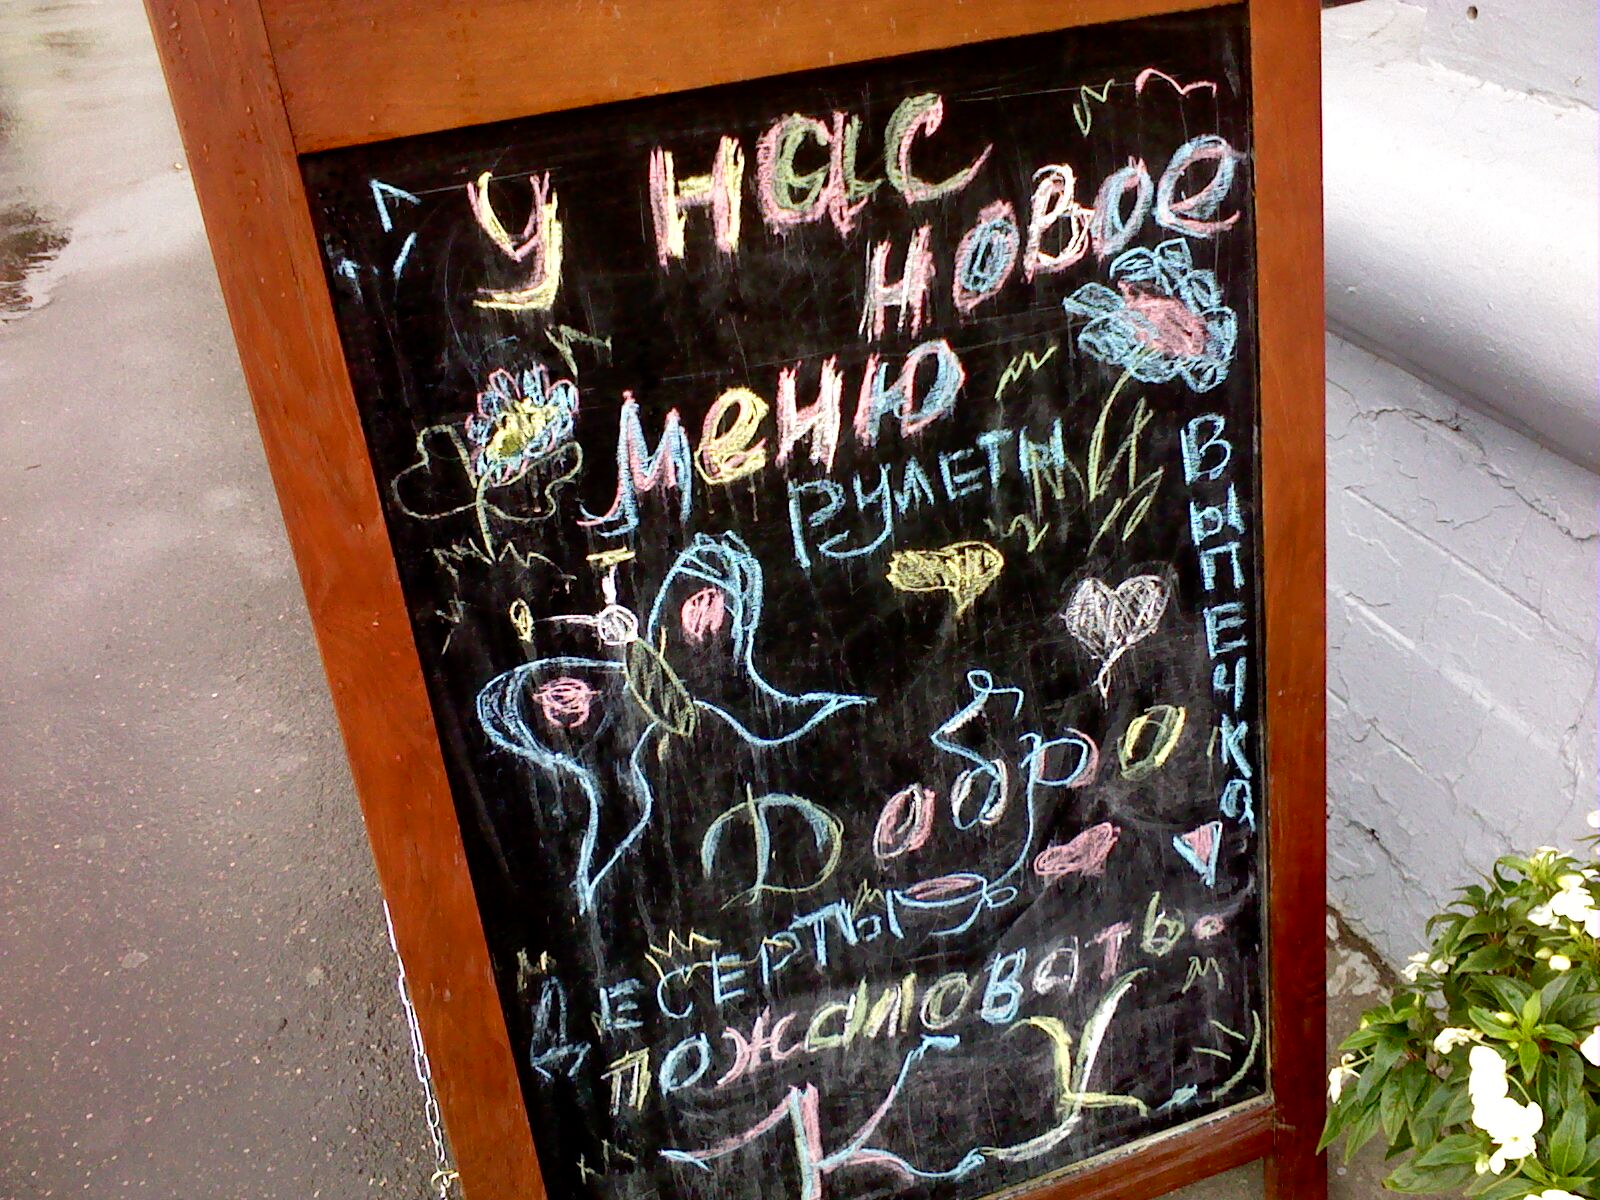 у нас
новое
меню
рулеты
выпечка
Добро
Десерты
пожаловать
К